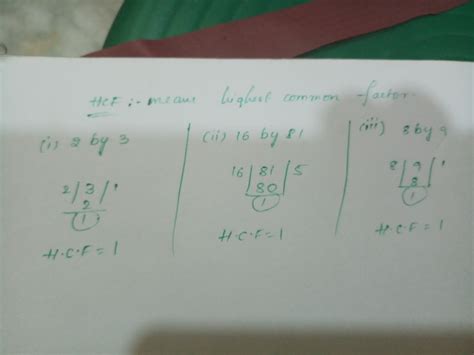 HCF :- means highest common factor.
(i) 2 by 3
2 / 3 / 1
2
1
H.C.F = 1
(ii) 16 by 81
16 | 81 | 5
80
1
H.C.F = 1
(iii) 8 by 9
8 | 9 | 1
8
1
H.C.F = 1